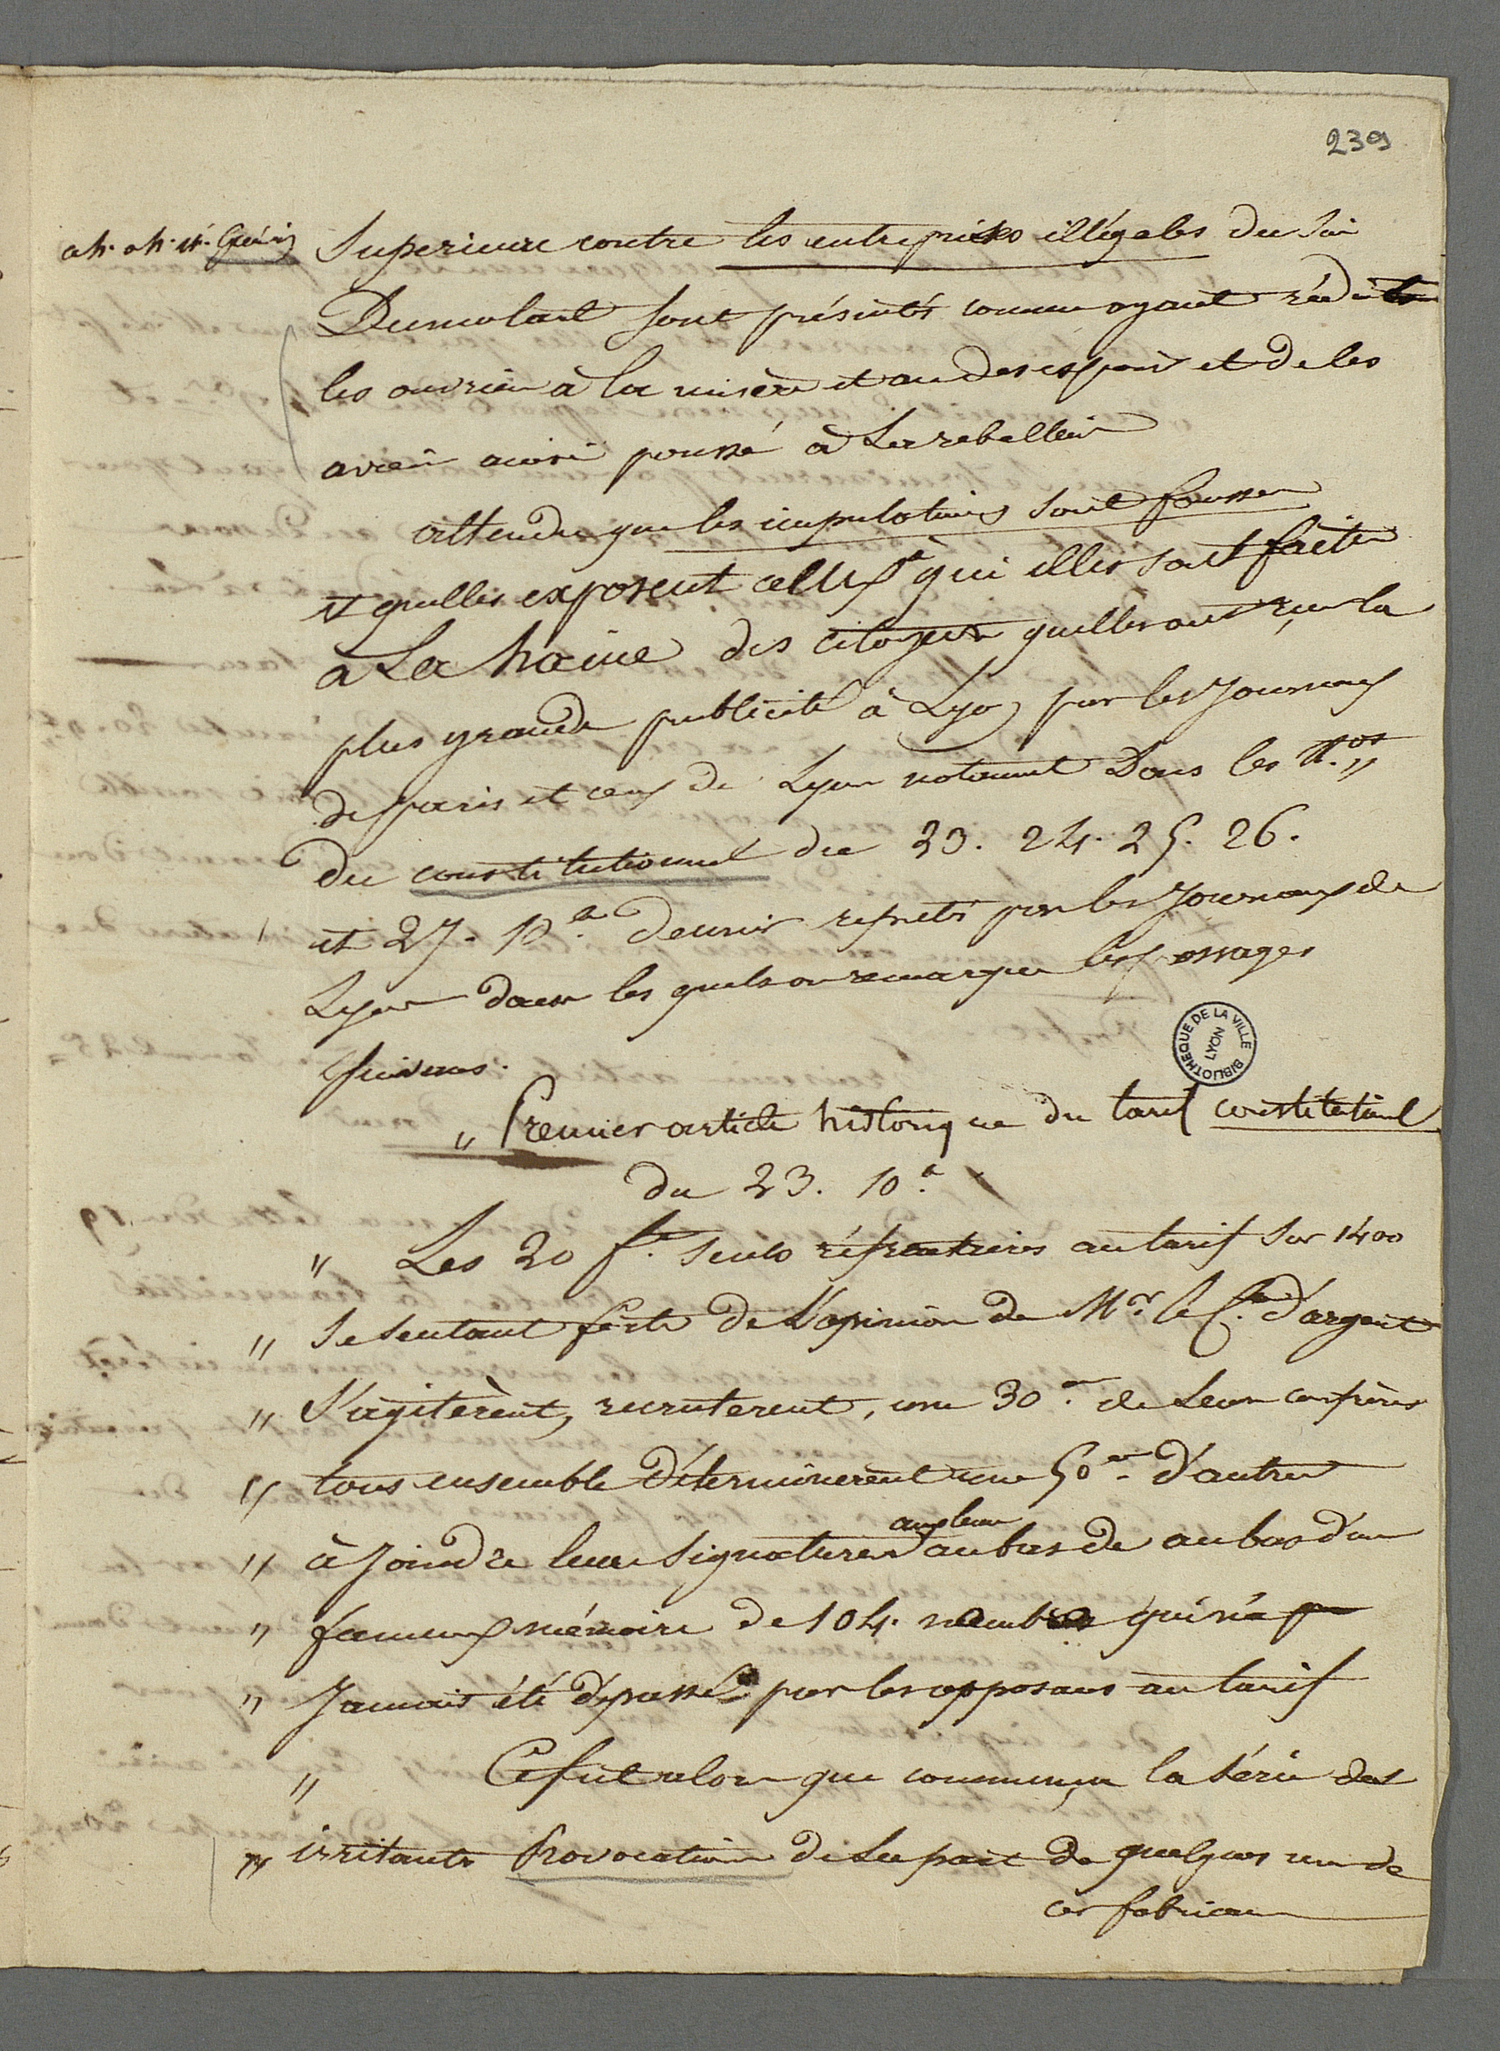 239
Superieure contre les entreprises illégales du Sir
Dumolart sont présentés comme ayant réduit
les ouvriers à la misère et au desespoir et de les
avoir ainsi poussé à La rebellion
attendu que les imputations sont fausses
et quelles exposent celux à qui elles sont faites
à La haine des citoyens quelles ont reçu la
plus grande publicité à Lyon par les Journaux
de paris et ceux de Lyon notamment Dans les N.os
du constitutionnel du 23. 24. 25. 26.
et 27. 10.e dernier repetés par les Journaux de
Lyon dans les quels on remarque les passages
suivans.
BIBLIOTHEQUE DE LA VILLE LYON
" Premier article historique du tarif constitutionel
du 23. 10.e
" Les 20 f.ts seuls réfractaires au tarif Sur 1400
" Se sentant forts de L'opinion de Mr. le C.te d'argout
" S'agitèrent, recruterent, une 30.ne de Leurs confrères
" tous ensemble déterminerent une 50.ne d'autres
aux leurs
" à Joindre leurs signatures au bas de au bas d'un
" fameux mémoire de 104. membres qui n'a
" Jamais été dépassé par les opposans au tarif
" Ce fut alors que commença la série des
" irritantes Provocations de La part de quelques uns de
ces fabricans